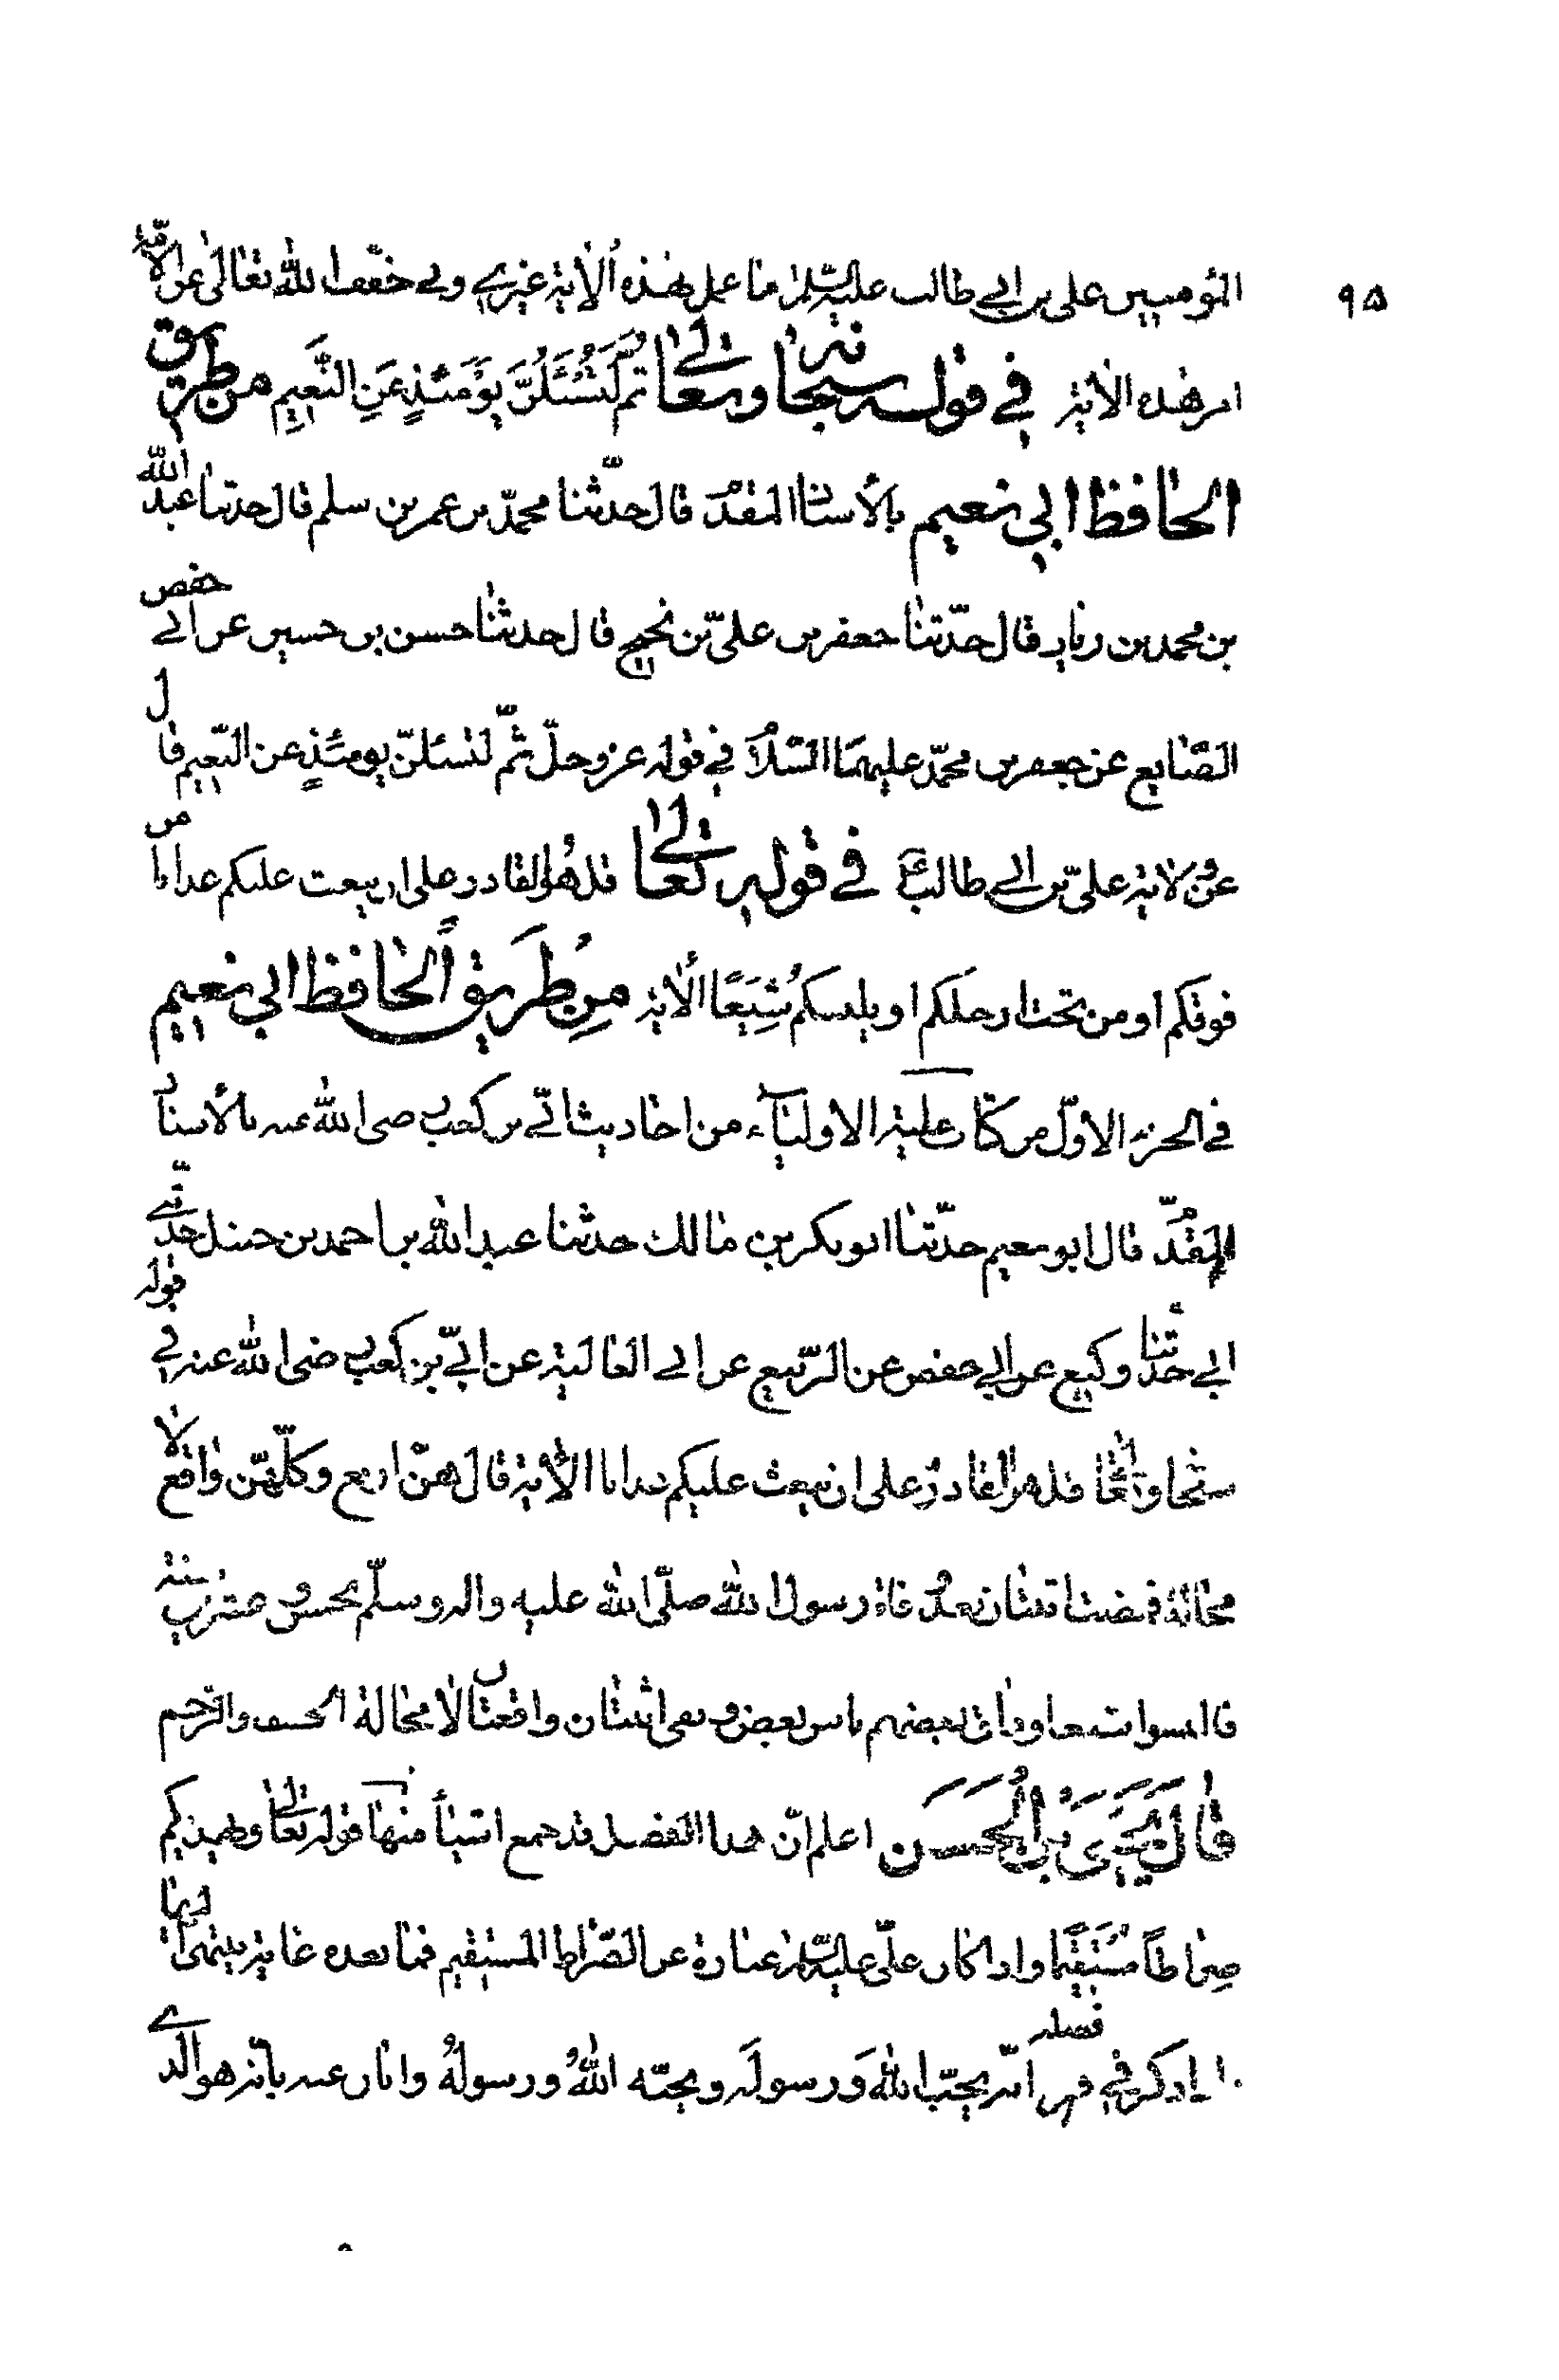 ٩٥
المؤمنين علي بن ابي طالب عليه السلم ما عمل بهذه الأية غيري وبي خفف الله تعالى عن الأمّة
امر هذه الأية في قوله سبحانه وتعالى ثُمَّ لَتُسْئَلُنَّ يَوْمَئِذٍ عَنِ النَّعِيمِ من طريق
الحافظ ابي نعيم بالأسناد المقدّم قال حدّثنا محمّد بن عمر بن سلم قال حدثنا عبد الله
بن محمد بن زياد قال حدّثنا جعفر بن عليّ بن نجيح قال حدثنا حسن بن حسين عن ابي حفص
الصّايع عن جعفر بن محمّد عليهما السّلام في قوله عز وجلّ ثمّ لتسئلنّ يومئذٍ عن النّعيم قال
عن ولاية عليّ بن ابي طالب ع في قوله تعالى قل هُو القادر على ان يبعث عليكم عذابا من
فوقكم او من تحت ارجلكم او يلبسكم شِيَعًا الأية مِن طَريق الحافظ ابي نعيم
في الجزء الاوّل من كتاب حلية الاولياء من احاديث ابي بن كعب رضى الله عنه بالأسناد
المقدّم قال ابو نعيم حدّثنا ابو بكر بن مالك حدثنا عبد الله بن احمد بن حنبل حدّثني
ابي حدّثنا وكيع عن ابي جعفر عن الرّبيع عن ابي العالية عن ابيّ بن كعب رضى الله عنه في قوله
سبحانه وتعالى قل هو القادر على ان يبعث عليكم عذابا الأية قال هنّ اربع وكلّهنّ واقع لا
محالة فمضت اثنتان بعد وفاة رسول الله صلّى الله عليه واله وسلّم بخمس وعشرين سنة
فالبسوا شيعا وذاق بعضهم باس بعض وبقى اثنتان واقعتان لا محالة الخسف والرّجم
قال يَحْيَى بنُ الحَسَن اعلم انّ هذا الفصل قد جمع اشياء منها قوله تعالى ويهديكم
صِراطاً مُسْتَقِيمًا واذا كان عليّ عليه السّلم عبارة عن الصّراط المستقيم فما بعده غاية ينتهى اليها
اذ ذكر في فصله انّه يحبّ الله وَرسولَه ويحبّه اللهُ ورسولهُ وابان عنه بانّه هو الذي